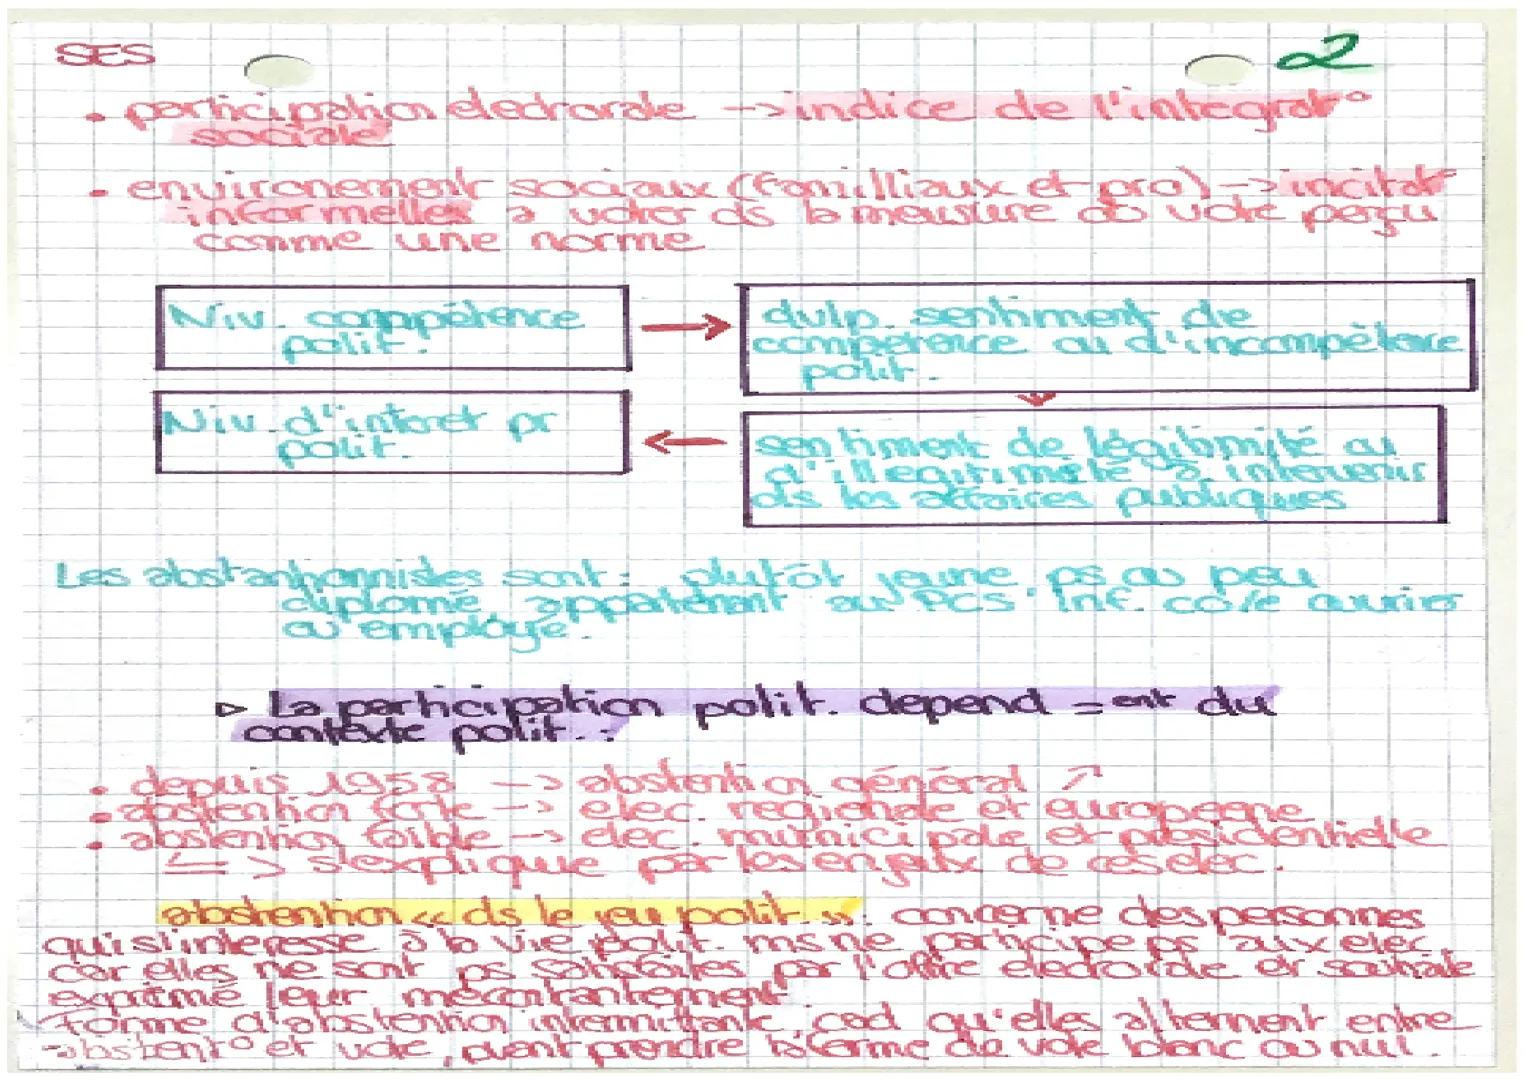 SES
2
• participation electorale -> indice de l'integrat°
sociale
• environement sociaux (familliaux et pro) -> incitat°
informelles a voter ds la meusiure où vote perçu
comme une norme
Niv. compétence
polit.
->
dvlp. sentiment de
competence ou d'incompétence
polit.
Niv. d'interet pr
polit.
<-
sentiment de légitimité ou
d'illegitimeté à intervenir
ds les affaires publiques
Les abstantionnistes sont : plutôt jeune ps ou peu
diplomé, appatenant au PCS inf. co/e ouvrier
ou employé.
▷ La participation polit. depend = ent du
contexte polit. :
• depuis 1958 -> abstention général ↗
• abstention forte -> elec. regionale et europeene
• abstention faible -> elec. municipale et présidentielle
<=> s'explique par les enjeux de ces elec.
abstention « ds le jeu polit. » : concerne des personnes
qui s'interesse à la vie polit. ms ne participe ps aux elec.
car elles ne sont ps satisfaites par l'offre electorale et souhaite
exprimé leur mécontantement
Forme d'abstention intermittante, cad qu'elles alternent entre
abstent° et vote, pevent prendre la forme de vote blanc ou nul.